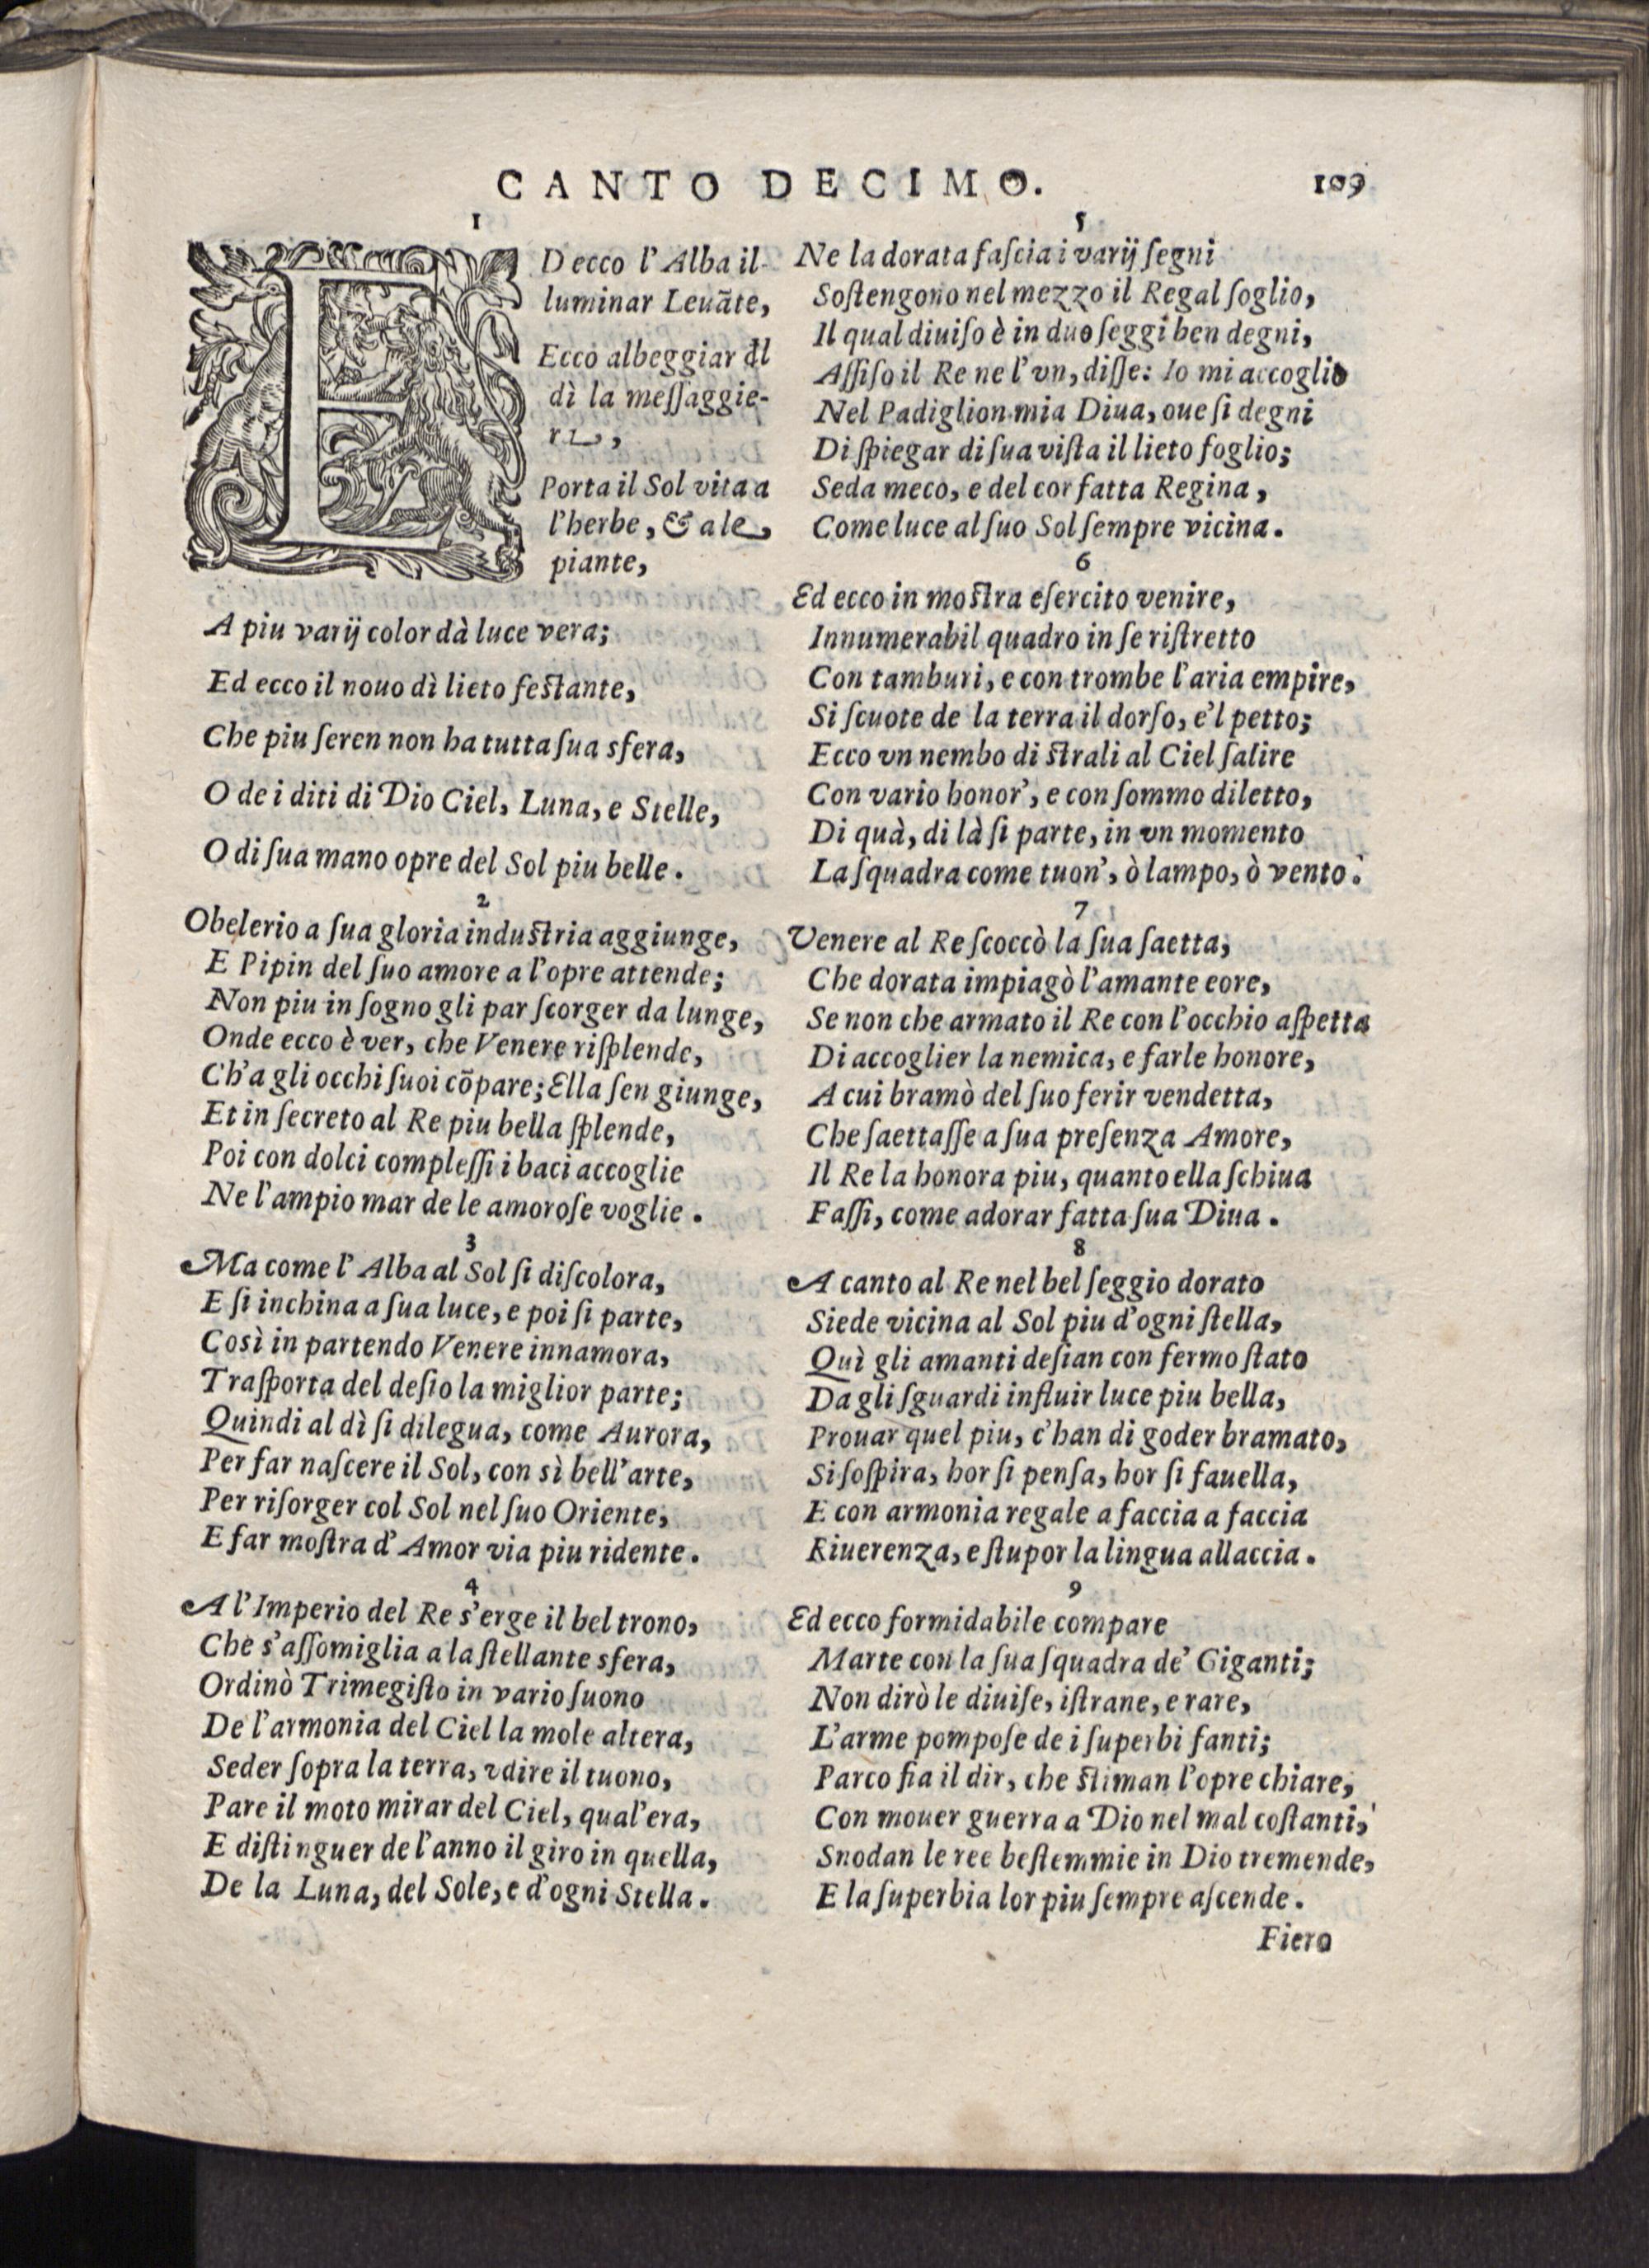 CANTO DECIMO. 109
1
ED ecco l'Alba il-
luminar Leuãte,
Ecco albeggiar dl
dì la meſſaggie-
ra,
Porta il Sol vita a
l'herbe, & a le
piante,
A piu varij color dà luce vera;
Ed ecco il nouo dì lieto feſtante,
Che piu ſeren non ha tutta ſua sfera,
O de i diti di Dio Ciel, Luna, e Stelle,
O di ſua mano opre del Sol piu belle.
2
Obelerio a ſua gloria induſtria aggiunge,
E Pipin del ſuo amore a l'opre attende;
Non piu in ſogno gli par ſcorger da lunge,
Onde ecco è ver, che Venere riſplende,
Ch'a gli occhi ſuoi cõpare; Ella ſen giunge,
Et in ſecreto al Re piu bella ſplende,
Poi con dolci compleſſi i baci accoglie
Ne l'ampio mar de le amoroſe voglie.
3
Ma come l'Alba al Sol ſi diſcolora,
E ſi inchina a ſua luce, e poi ſi parte,
Così in partendo Venere innamora,
Traſporta del deſio la miglior parte;
Quindi al dì ſi dilegua, come Aurora,
Per far naſcere il Sol, con sì bell'arte,
Per riſorger col Sol nel ſuo Oriente,
E far moſtra d'Amor via piu ridente.
4
A l'Imperio del Re s'erge il bel trono,
Che s'aſſomiglia a la ſtellante sfera,
Ordinò Trimegiſto in vario ſuono
De l'armonia del Ciel la mole altera,
Seder ſopra la terra, vdire il tuono,
Pare il moto mirar del Ciel, qual'era,
E diſtinguer de l'anno il giro in quella,
De la Luna, del Sole, e d'ogni Stella.
5
Ne la dorata faſcia i varij ſegni
Soſtengono nel mezzo il Regal ſoglio,
Il qual diuiſo è in duo ſeggi ben degni,
Aſſiſo il Re ne l'vn, diſſe: Io mi accoglio
Nel Padiglion mia Diua, oue ſi degni
Di ſpiegar di ſua viſta il lieto foglio;
Seda meco, e del cor fatta Regina,
Come luce al ſuo Sol ſempre vicina.
6
Ed ecco in moſtra eſercito venire,
Innumerabil quadro in ſe riſtretto
Con tamburi, e con trombe l'aria empire,
Si ſcuote de la terra il dorſo, e'l petto;
Ecco vn nembo di ſtrali al Ciel ſalire
Con vario honor', e con ſommo diletto,
Di quà, di là ſi parte, in vn momento
La ſquadra come tuon', ò lampo, ò vento.
7
Venere al Re ſcoccò la ſua ſaetta,
Che dorata impiagò l'amante eore,
Se non che armato il Re con l'occhio aſpetta
Di accoglier la nemica, e farle honore,
A cui bramò del ſuo ferir vendetta,
Che ſaettaſſe a ſua preſenza Amore,
Il Re la honora piu, quanto ella ſchiua
Faſſi, come adorar fatta ſua Diua.
8
A canto al Re nel bel ſeggio dorato
Siede vicina al Sol piu d'ogni ſtella,
Quì gli amanti deſian con fermo ſtato
Da gli ſguardi influir luce piu bella,
Prouar quel piu, c'han di goder bramato,
Si ſoſpira, hor ſi penſa, hor ſi fauella,
E con armonia regale a faccia a faccia
Riuerenza, e ſtupor la lingua allaccia.
9
Ed ecco formidabile compare
Marte con la ſua ſquadra de' Giganti;
Non dirò le diuiſe, iſtrane, e rare,
L'arme pompoſe de i ſuperbi fanti;
Parco fia il dir, che ſtiman l'opre chiare,
Con mouer guerra a Dio nel mal coſtanti,
Snodan le ree beſtemmie in Dio tremende,
E la ſuperbia lor piu ſempre aſcende.
Fiero